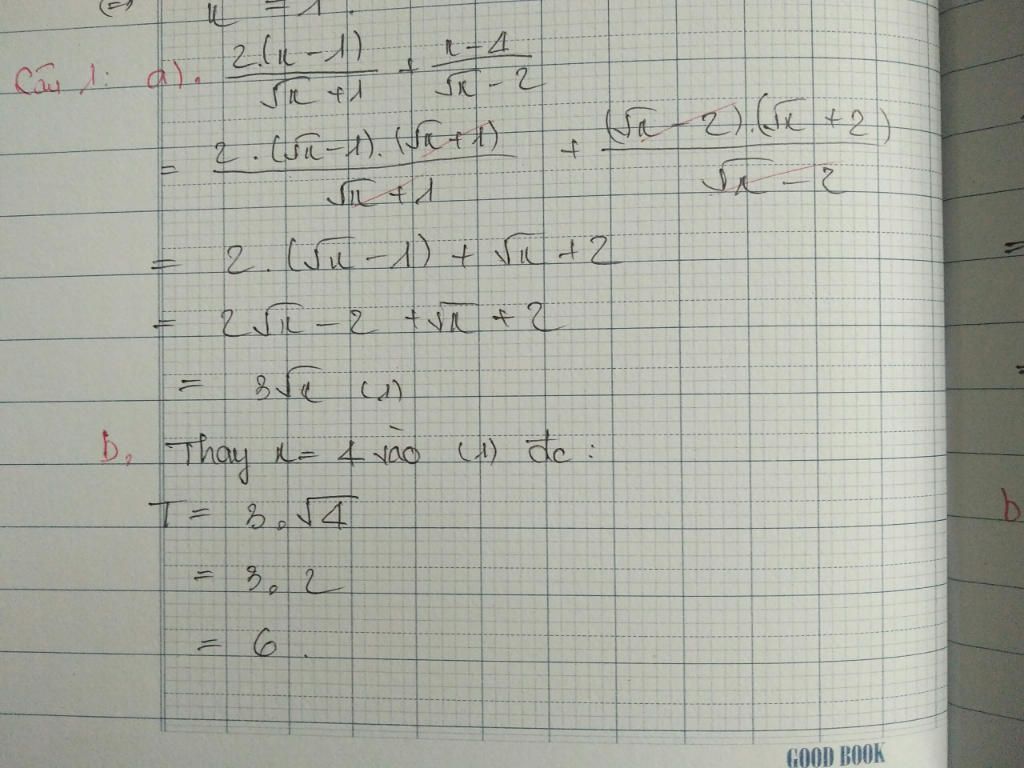 (=) x = 1.
Câu 1: a). \frac{2.(x-1)}{\sqrt{x}+1} + \frac{x-4}{\sqrt{x}-2}
= \frac{2.(\sqrt{x}-1).(\sqrt{x}+1)}{\sqrt{x}+1} + \frac{(\sqrt{x}-2).(\sqrt{x}+2)}{\sqrt{x}-2}
= 2.(\sqrt{x}-1) + \sqrt{x}+2
= 2\sqrt{x}-2+\sqrt{x}+2
= 3\sqrt{x} (1)
b, Thay x = 4 vào (1) đc:
T = 3.\sqrt{4}
= 3. 2
= 6.
=
=
b
GOOD BOOK